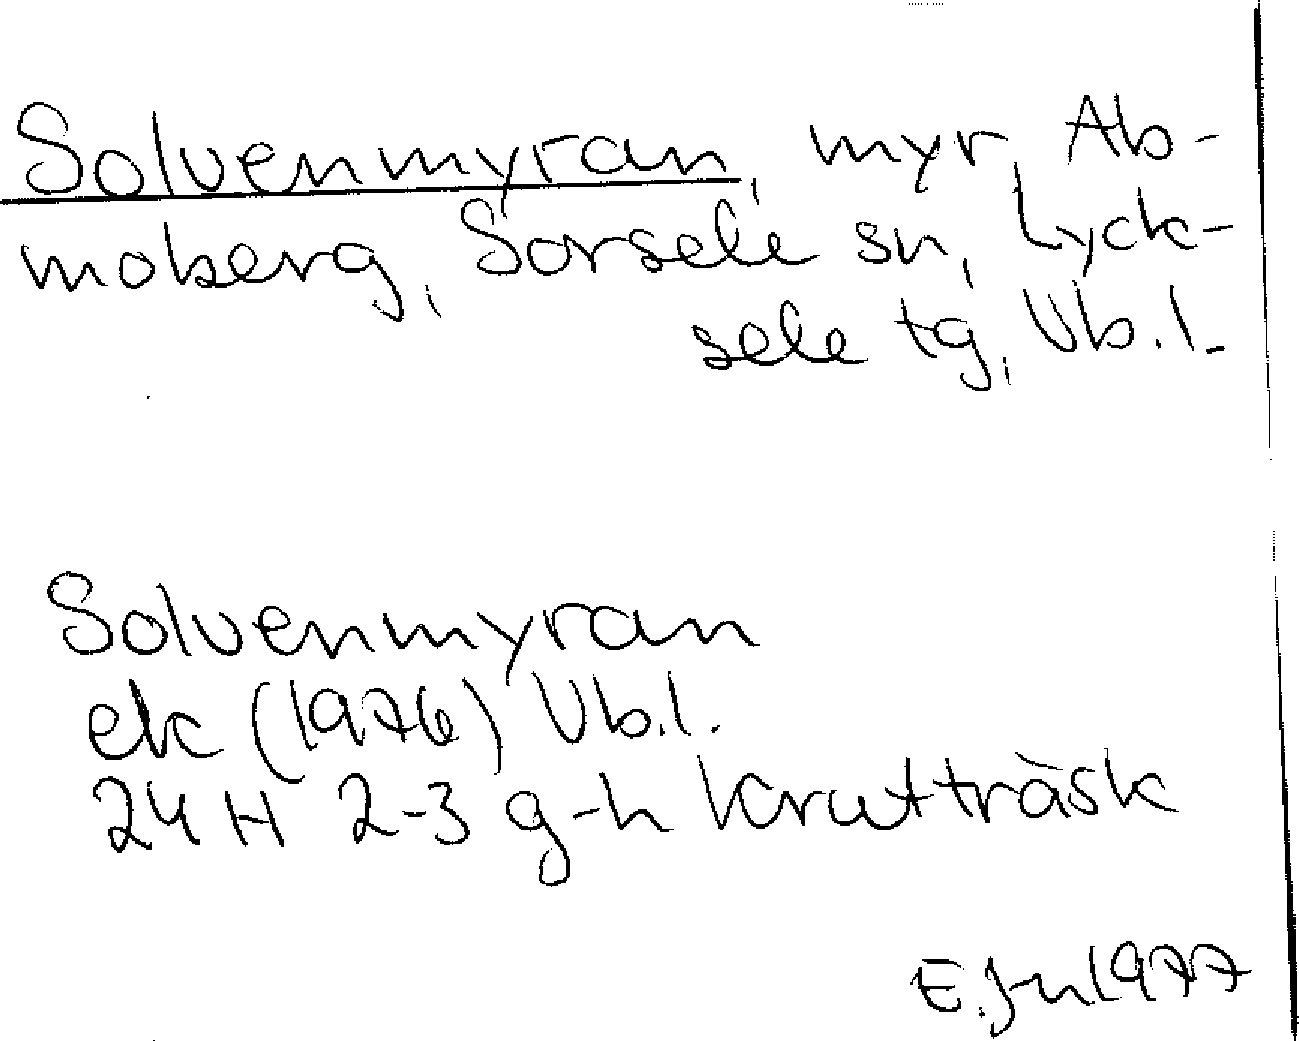 Solvenmyran, myr, Ab-
moberg, Sorsele sn, Lyck-
sele tg, Vb.l.
Solvenmyran
ek (1976) Vb.l.
24H 2-3 g-h Krutträsk
E. 1977